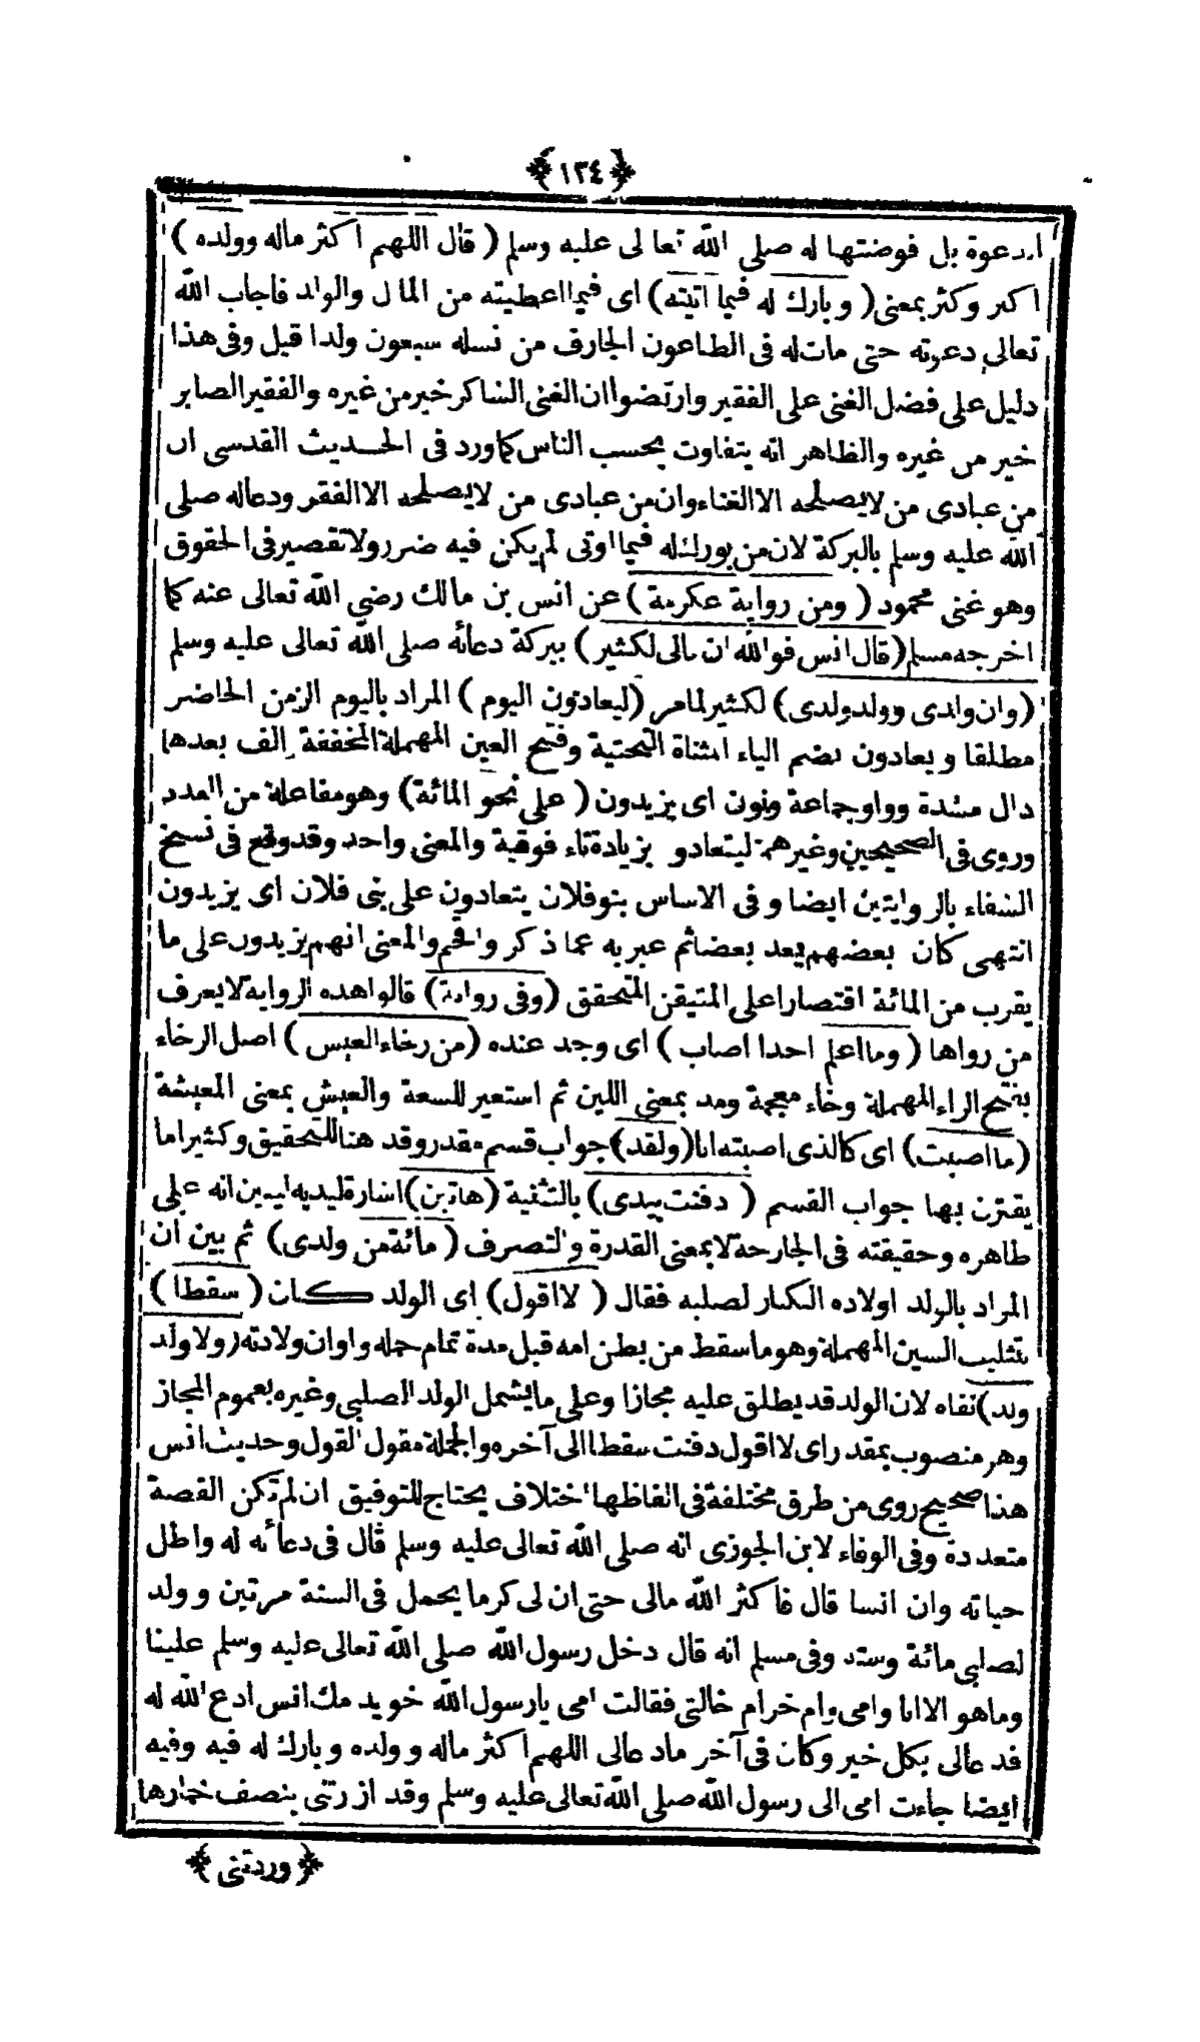 ﴿١٣٤﴾
بل فوضتها له صلى الله تعالى عليه وسلم (قال اللهم اكثر ماله وولده)
اكبر وكثر بمعنى (وبارك له فيما اتيته) اى فيما اعطيته من المال والولد فاجاب الله
تعالى دعوته حتى مات له فى الطاعون الجارف من نسله سبعون ولدا قيل وفى هذا
دليل على فضل الغنى على الفقير وارتضوا ان الغنى الشاكر خير من غيره والفقير الصابر
خير من غيره والظاهر انه يتفاوت بحسب الناس كما ورد فى الحديث القدسى ان
من عبادى من لا يصلحه الا الغناء وان من عبادى من لا يصلحه الا الفقر ودعاله صلى
الله عليه وسلم بالبركة لان من بورك له فيما اوتى لم يكن فيه ضرر ولا تقصير فى الحقوق
وهو غنى محمود (ومن رواية عكرمة) عن انس بن مالك رضى الله تعالى عنه كما
اخرجه مسلم (قال انس فوالله ان مالى لكثير) ببركة دعائه صلى الله تعالى عليه وسلم
(وان ولدى وولد ولدى) لكثير لما مر (ليعادون اليوم) المراد باليوم الزمن الحاضر
مطلقا ويعادون بضم الياء المثناة التحتية وفتح العين المهملة المخففة الف بعدها
دال مشددة وواو جماعة ونون اى يزيدون (على نحو المائة) وهو مفاعلة من العدد
وروى فى الصحيحين وغيرهما ليتعادو بزيادة تاء فوقية والمعنى واحد وقد وقع فى نسخ
الشفاء بالروايتين ايضا وفى الاساس بنو فلان يتعادون على بنى فلان اى يزيدون
انتهى كان بعضهم يعد بعضا ثم عبر به عما ذكر والمعنى انهم يزيدون على ما
يقرب من المائة اقتصارا على المتيقن المتحقق (وفى رواية) قالوا هذه الرواية لا يعرف
من رواها (وما اعلم احدا اصاب) اى وجد عنده (من رخاء العيش) اصل الرخاء
بفتح الراء المهملة وخاء معجمة ومد بمعنى اللين ثم استعير للسعة والعيش بمعنى المعيشة
(ما اصبت) اى كالذى اصبته انا (ولقد) جواب قسم مقدر وقد هنا للتحقيق وكثيرا ما
يقترن بها جواب القسم (دفنت بيدى) بالتثنية (هاتين) اشارة ليديه ليبين انه على
ظاهره وحقيقته فى الجارحة لا بمعنى القدرة والتصرف (مائة من ولدى) ثم بين ان
المراد بالولد اولاده الكبار لصلبه فقال (لا اقول) اى الولد كان (سقطا)
بتثليث السين المهملة وهو ما سقط من بطن امه قبل مدة تمام حمله واوان ولادته (ولا ولد
ولد) نفاه لان الولد قد يطلق عليه مجازا وعلى ما يشمل الولد الصلبى وغيره بعموم المجاز
وهو منصوب بمقدر اى لا اقول دفنت سقطا الى آخره والجملة مقول القول وحديث انس
هذا صحيح روى من طرق مختلفة فى الفاظها اختلاف يحتاج للتوفيق ان لم تكن القصة
متعددة وفى الوفاء لابن الجوزى انه صلى الله تعالى عليه وسلم قال فى دعائه له واطل
حياته وان انسا قال فاكثر الله مالى حتى ان لى كرما يحمل فى السنة مرتين وولد
لصلبى مائة وستة وفى مسلم انه قال دخل رسول الله صلى الله تعالى عليه وسلم علينا
وما هو الا انا وامى وام حرام خالتى فقالت امى يا رسول الله خويدمك انس ادع الله له
فدعا لى بكل خير وكان فى آخر ما دعا لى اللهم اكثر ماله وولده وبارك له فيه وفيه
ايضا جاءت امى الى رسول الله صلى الله تعالى عليه وسلم وقد ازرتنى بنصف خمارها
﴿وردتنى﴾